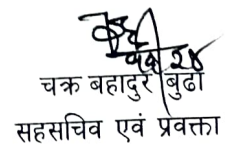 चक्र बहादुर बुढा
सहसचिव एवं प्रवक्ता